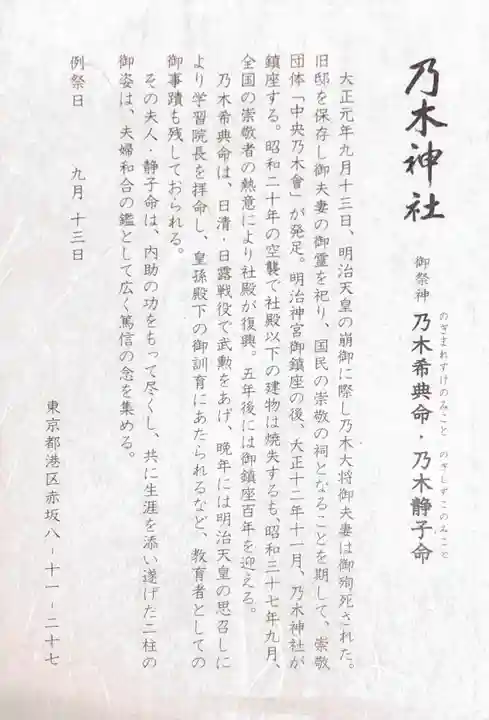 乃木神社
御祭神 乃木希典命・乃木静子命
のぎまれすけのみこと のぎしずこのみこと
大正元年九月十三日、明治天皇の崩御に際し乃木大将御夫妻は御殉死された。
旧邸を保存し御夫妻の御霊を祀り、国民の崇敬の祠となることを期して、崇敬
団体「中央乃木會」が発足。明治神宮御鎮座の後、大正十二年十一月、乃木神社が
鎮座する。昭和二十年の空襲で社殿以下の建物は焼失するも、昭和三十七年九月、
全国の崇敬者の熱意により社殿が復興。五年後には御鎮座百年を迎える。
乃木希典命は、日清・日露戦役で武勲をあげ、晩年には明治天皇の思召しに
より学習院長を拝命し、皇孫殿下の御訓育にあたられるなど、教育者としての
御事蹟も残しておられる。
その夫人・静子命は、内助の功をもって尽くし、共に生涯を添い遂げた二柱の
御姿は、夫婦和合の鑑として広く篤信の念を集める。
例祭日 九月十三日
東京都港区赤坂八-十一-二十七